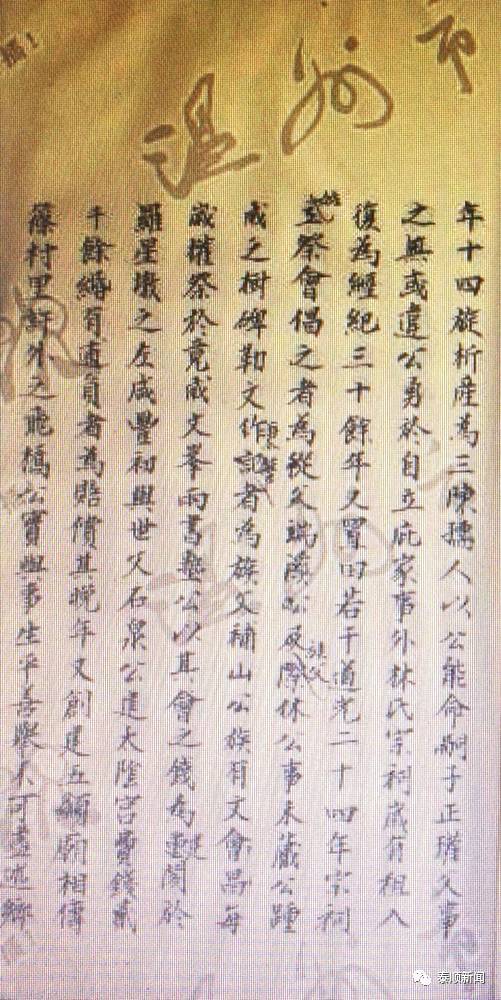 溫州市
年十四旋析產為三陳孺人以公能命嗣子正瓘父事
之無或違公勇於自立庇家事外林氏宗祠歲有租入
復為經紀三十餘年又置田若干道光二十四年宗祠
祭會倡之者為從父瑞公及族父際休公事未蕆公踵
成之樹碑勒文作記者為族父補山公族有文會每
歲榷祭於竟成文峯兩書塾公以其會之錢為建閣於
羅星墩之左咸豐初與世父石泉公建太陰宮費錢貳
千餘緡有逋負者為賠償其晚年又創建五顯廟相傳
村里許外之飛橋公實與事生平善舉未可盡述鄉
泰顺新闻